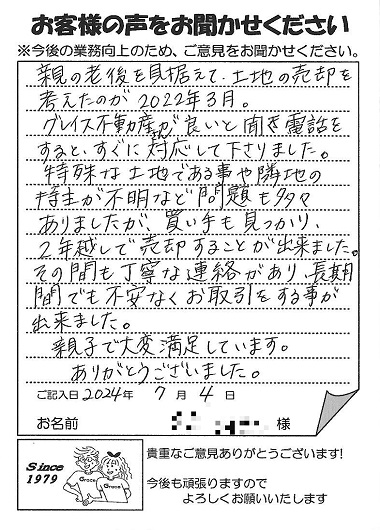 お客様の声をお聞かせください
※今後の業務向上のため、ご意見をお聞かせください。
親の老後を見据えて、土地の売却を
考えたのが2022年3月。
グレイス不動産さんが良いと聞き電話を
すると、すぐに対応して下さりました。
特殊な土地である事や隣地の
持主が不明など問題も多々
ありましたが、買い手も見つかり、
2年越しで売却することが出来ました。
その間も丁寧な連絡があり、長期
間でも不安なくお取引をする事が
出来ました。
親子で大変満足しています。
ありがとうございました。
ご記入日2024年 7月 4日
お名前 様
Since
1979
Grace
Grace
貴重なご意見ありがとうございます!
今後も頑張りますので
よろしくお願いいたします